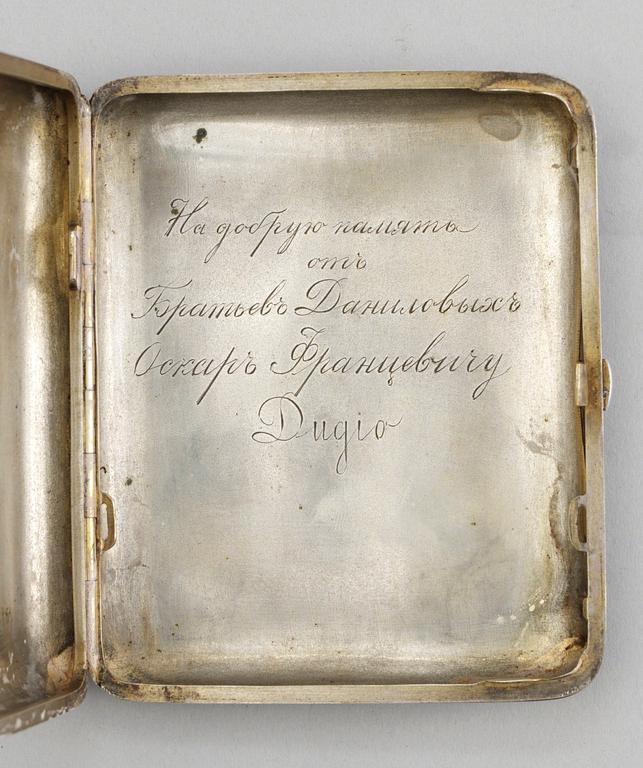 На добрую память
отъ
Братьевъ Даниловыхъ
Оскаръ Францевичу
Дидіо